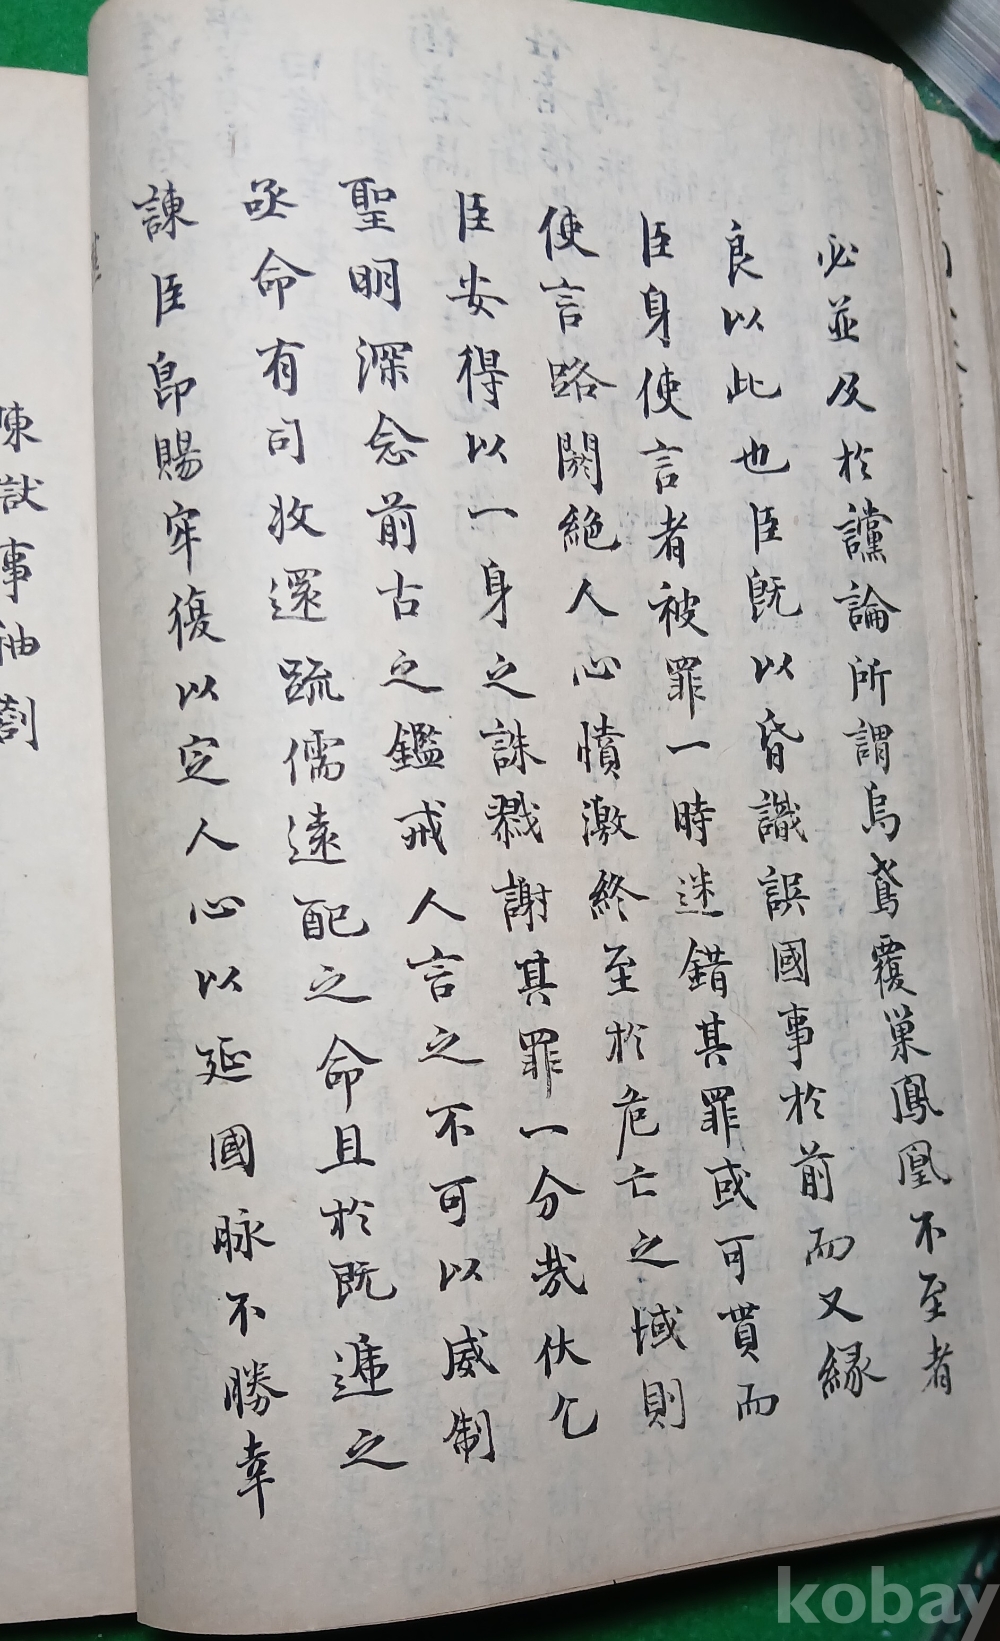 必並及於讜論所謂烏鳶覆巢鳳凰不至者
良以此也臣旣以昏識誤國事於前而又緣
臣身使言者被罪一時迷錯其罪或可貰而
使言路閼絶人心憤激終至於危亡之域則
臣安得以一身之誅戮謝其罪一分哉伏乞
聖明深念前古之鑑戒人言之不可以威制
亟命有司收還䟽儒遠配之命且於既遞之
諫臣卽賜牢復以定人心以延國脉不勝幸
陳試事袖劄
kobay